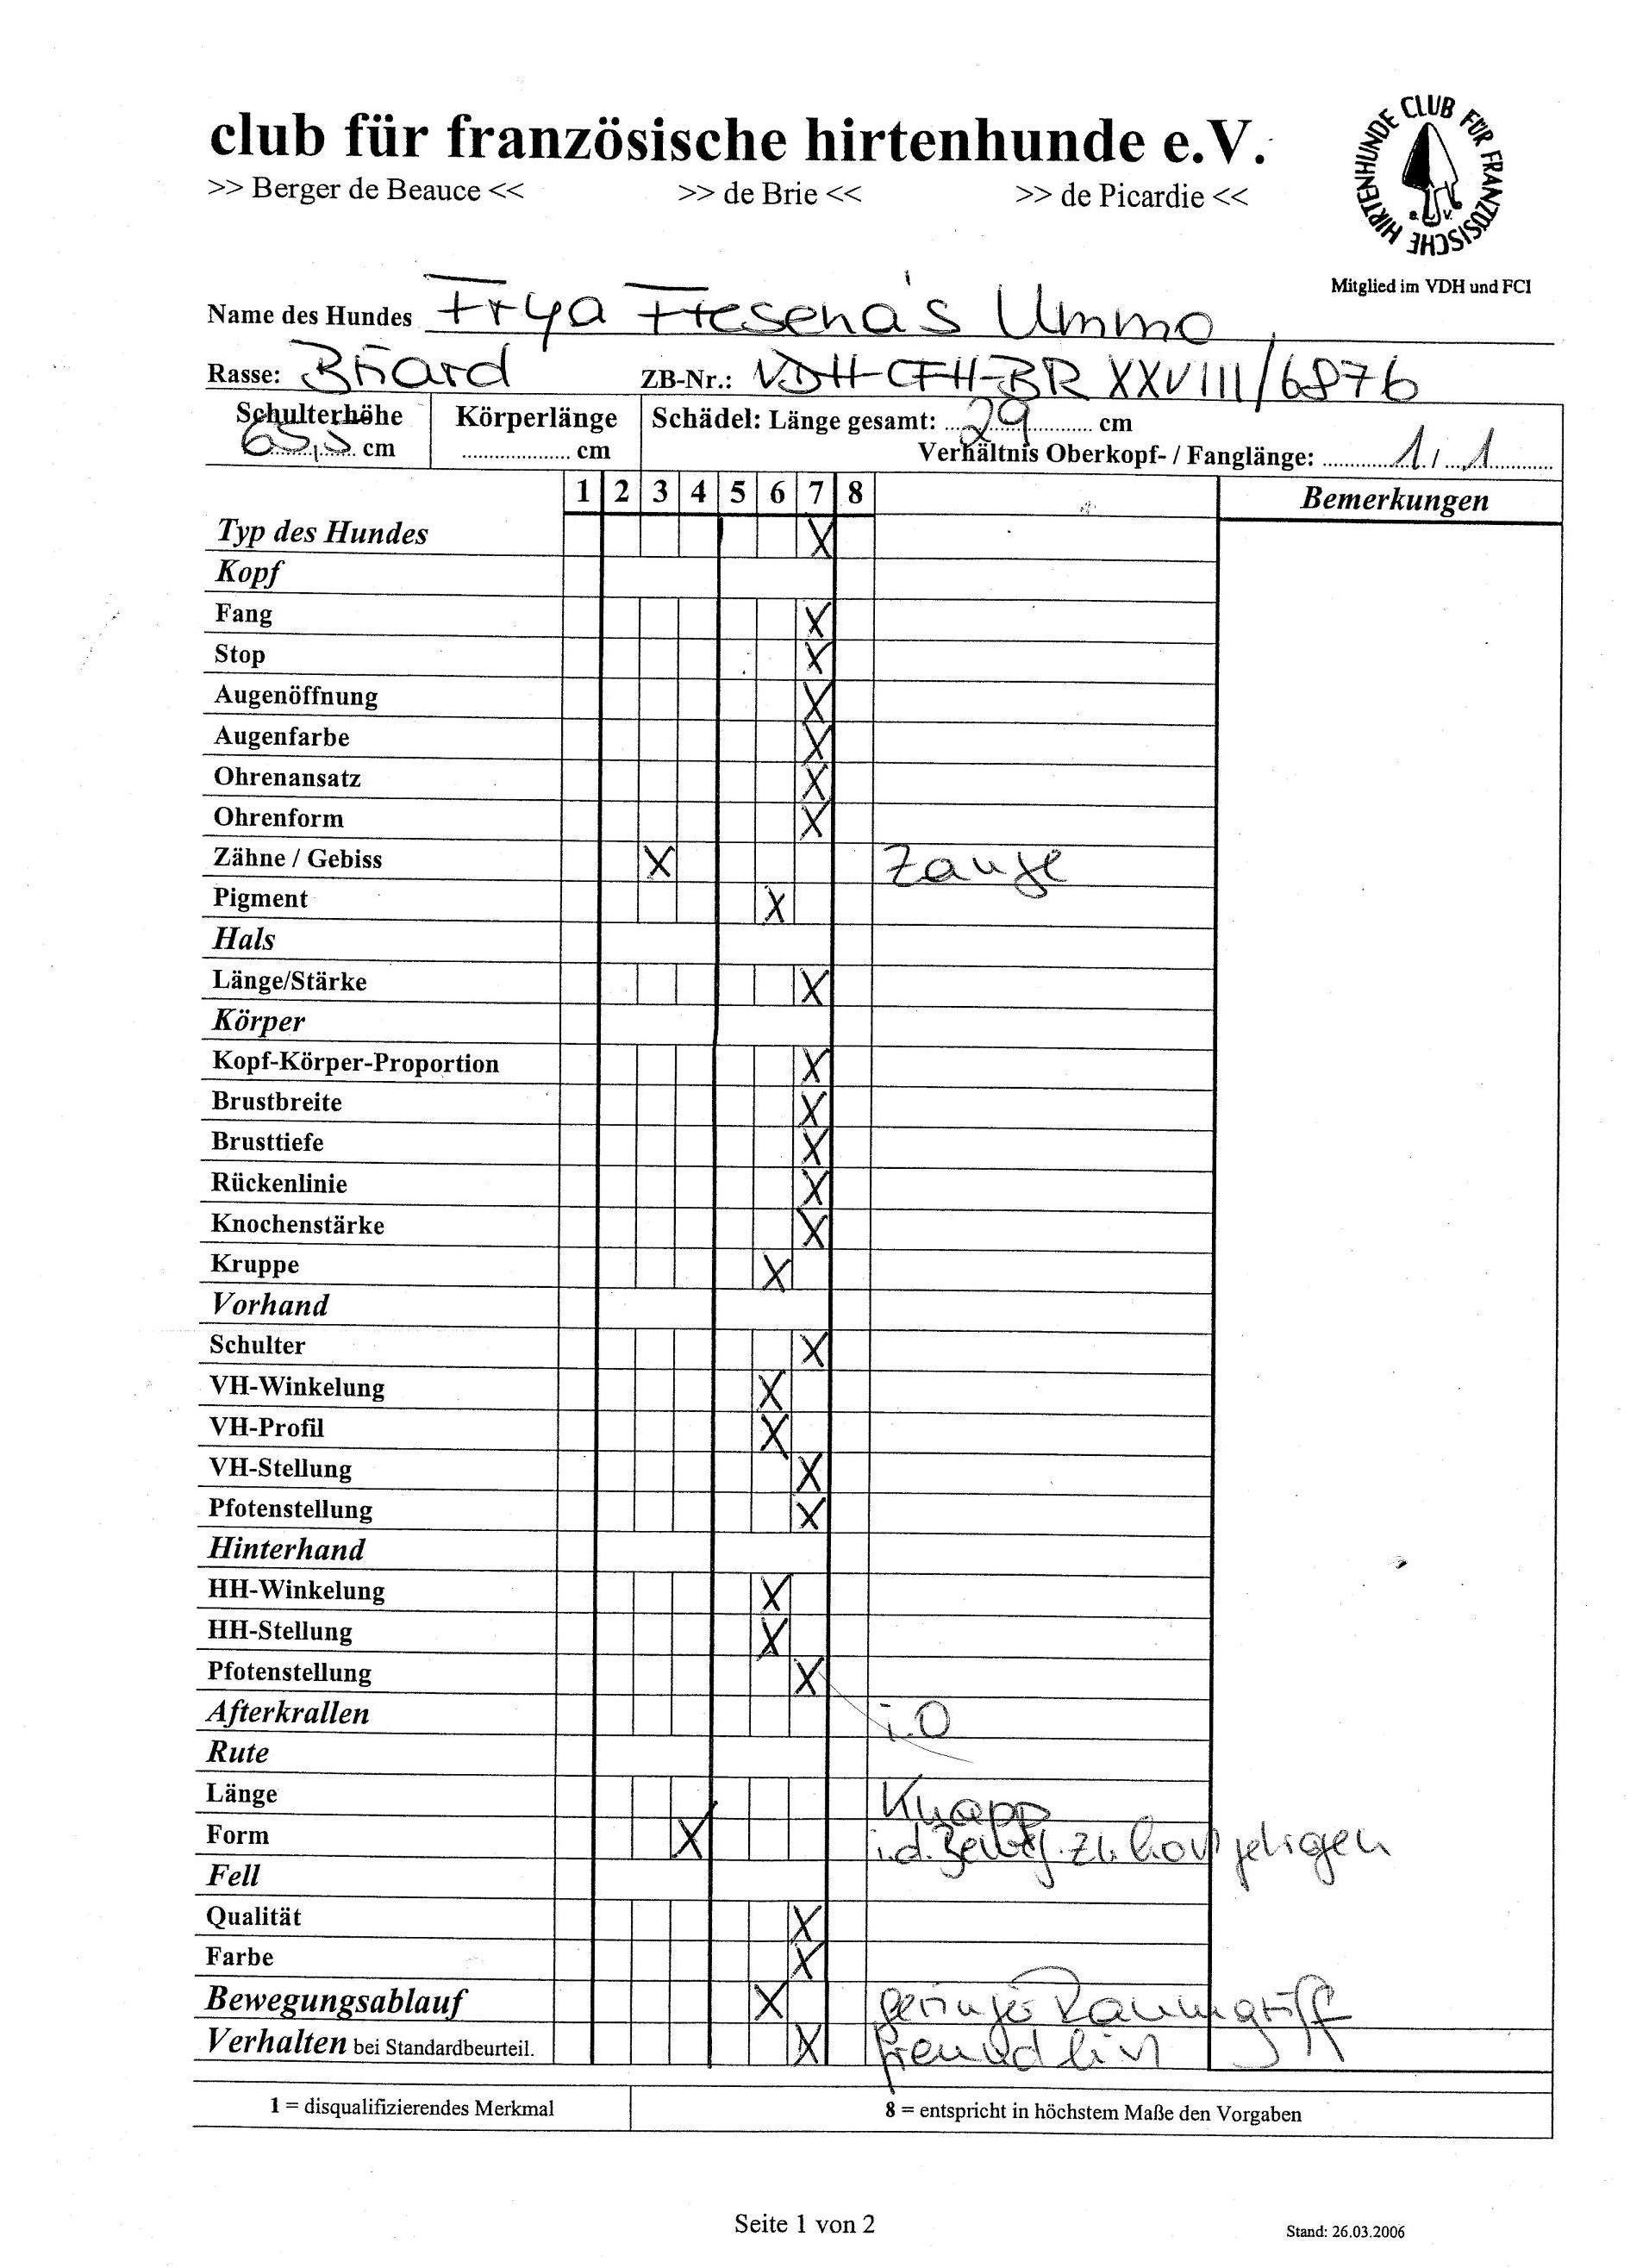 club für französische hirtenhunde e.V.
>> Berger de Beauce << >> de Brie << >> de Picardie <<
CLUB FÜR FRANZÖSISCHE HIRTENHUNDE e.V.
Mitglied im VDH und FCI
Name des Hundes Frya Fresena's Ummo
Rasse: Briard ZB-Nr.: VDH-CFH-BR XXVIII/6876
Schulterhöhe Körperlänge Schädel: Länge gesamt: 29 cm
65,5 cm cm Verhältnis Oberkopf- / Fanglänge: 1 : 1
1 2 3 4 5 6 7 8 Bemerkungen
Typ des Hundes X
Kopf
Fang X
Stop X
Augenöffnung X
Augenfarbe X
Ohrenansatz X
Ohrenform X
Zähne / Gebiss X Zange
Pigment X
Hals
Länge/Stärke X
Körper
Kopf-Körper-Proportion X
Brustbreite X
Brusttiefe X
Rückenlinie X
Knochenstärke X
Kruppe X
Vorhand
Schulter X
VH-Winkelung X
VH-Profil X
VH-Stellung X
Pfotenstellung X
Hinterhand
HH-Winkelung X
HH-Stellung X
Pfotenstellung X
Afterkrallen i.O
Rute
Länge Knapp
Form X i.d. Beweg. zu
Fell
Qualität X
Farbe X
Bewegungsablauf X geringer Raumgriff
Verhalten bei Standardbeurteil. X freundlich
1 = disqualifizierendes Merkmal 8 = entspricht in höchstem Maße den Vorgaben
Seite 1 von 2 Stand: 26.03.2006